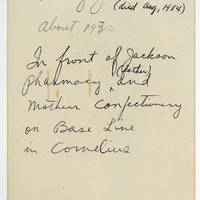 (died Aug, 1984)
About 1930
In front of Jackson
(father)
Pharmacy, and
Mothers Confectionery
on Base Line
in Cornelius